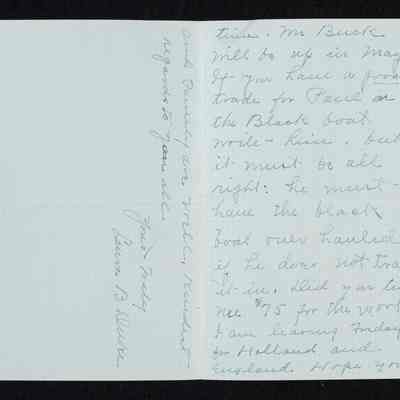 time. Mr Buck
will be up in May
If you have a good
trade for Paul or
the Black boat
write - him. but
it must be all
right: he must -
have the black
boat over hauled
if he does not tra
it in. Did you
me $75 for the
I am leaving Friday
for Holland and
England. Hope you
and family are well. Kindest -
regards to you all.